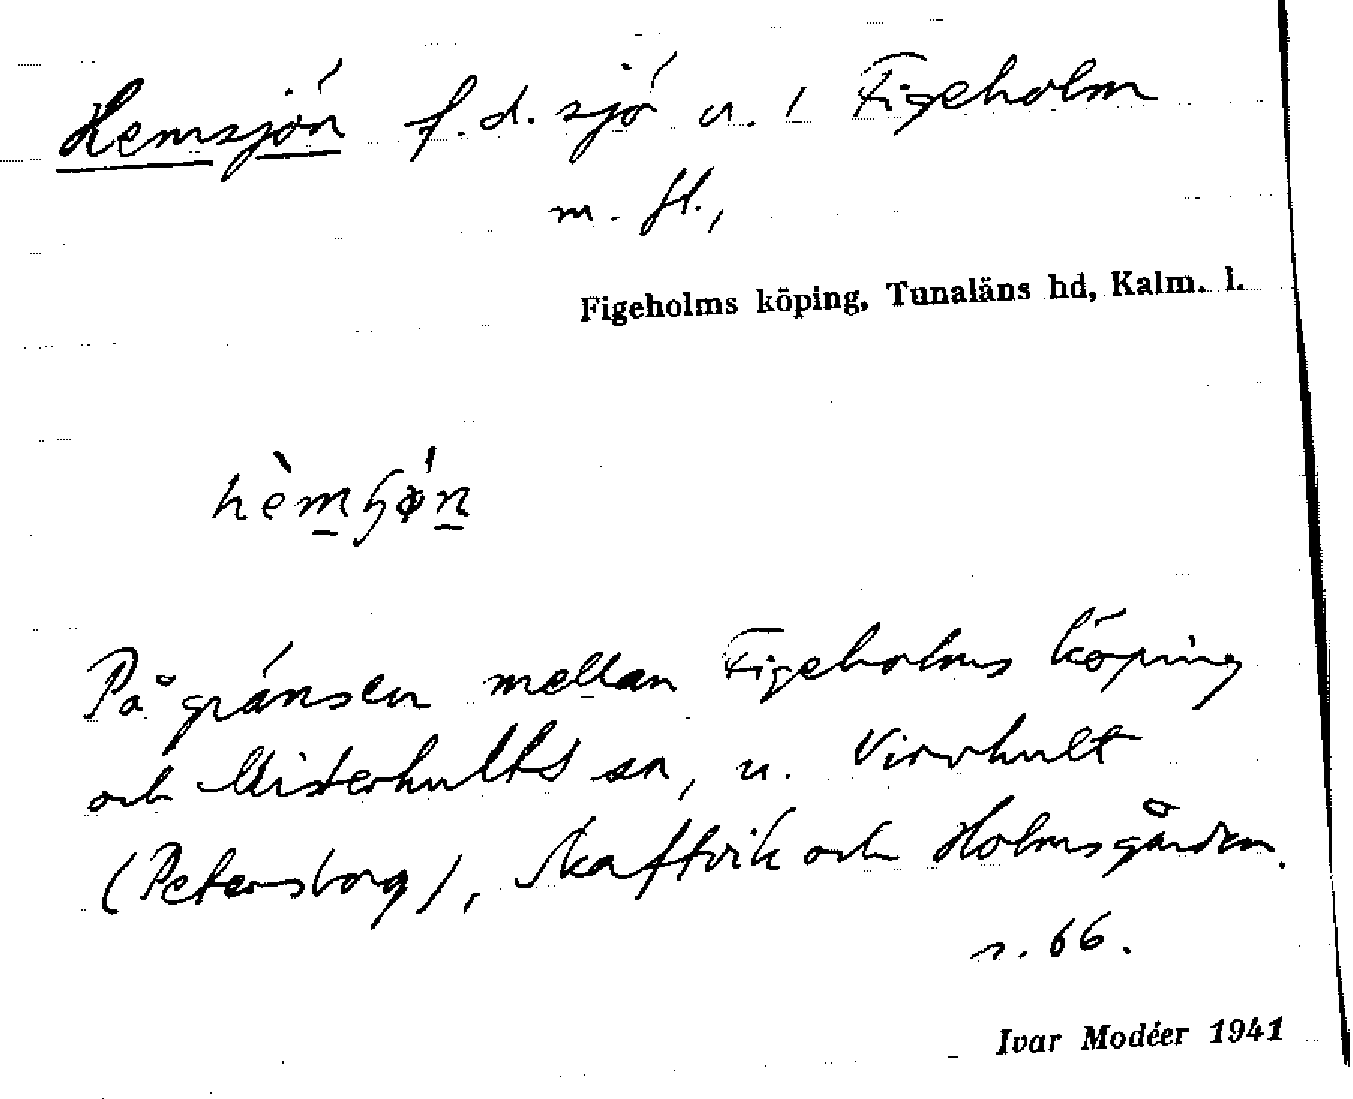 Hemsjön f.d. sjö u. 1 Figeholm
m. fl.,
Figeholms köping, Tunaläns hd, Kalm. l.
På gränsen mellan Figeholms köping
och Misterhults sn, u. Virrhult
(Petersborg), Skaftvik och Holmsgården.
s. 66.
Ivar Modéer 1941